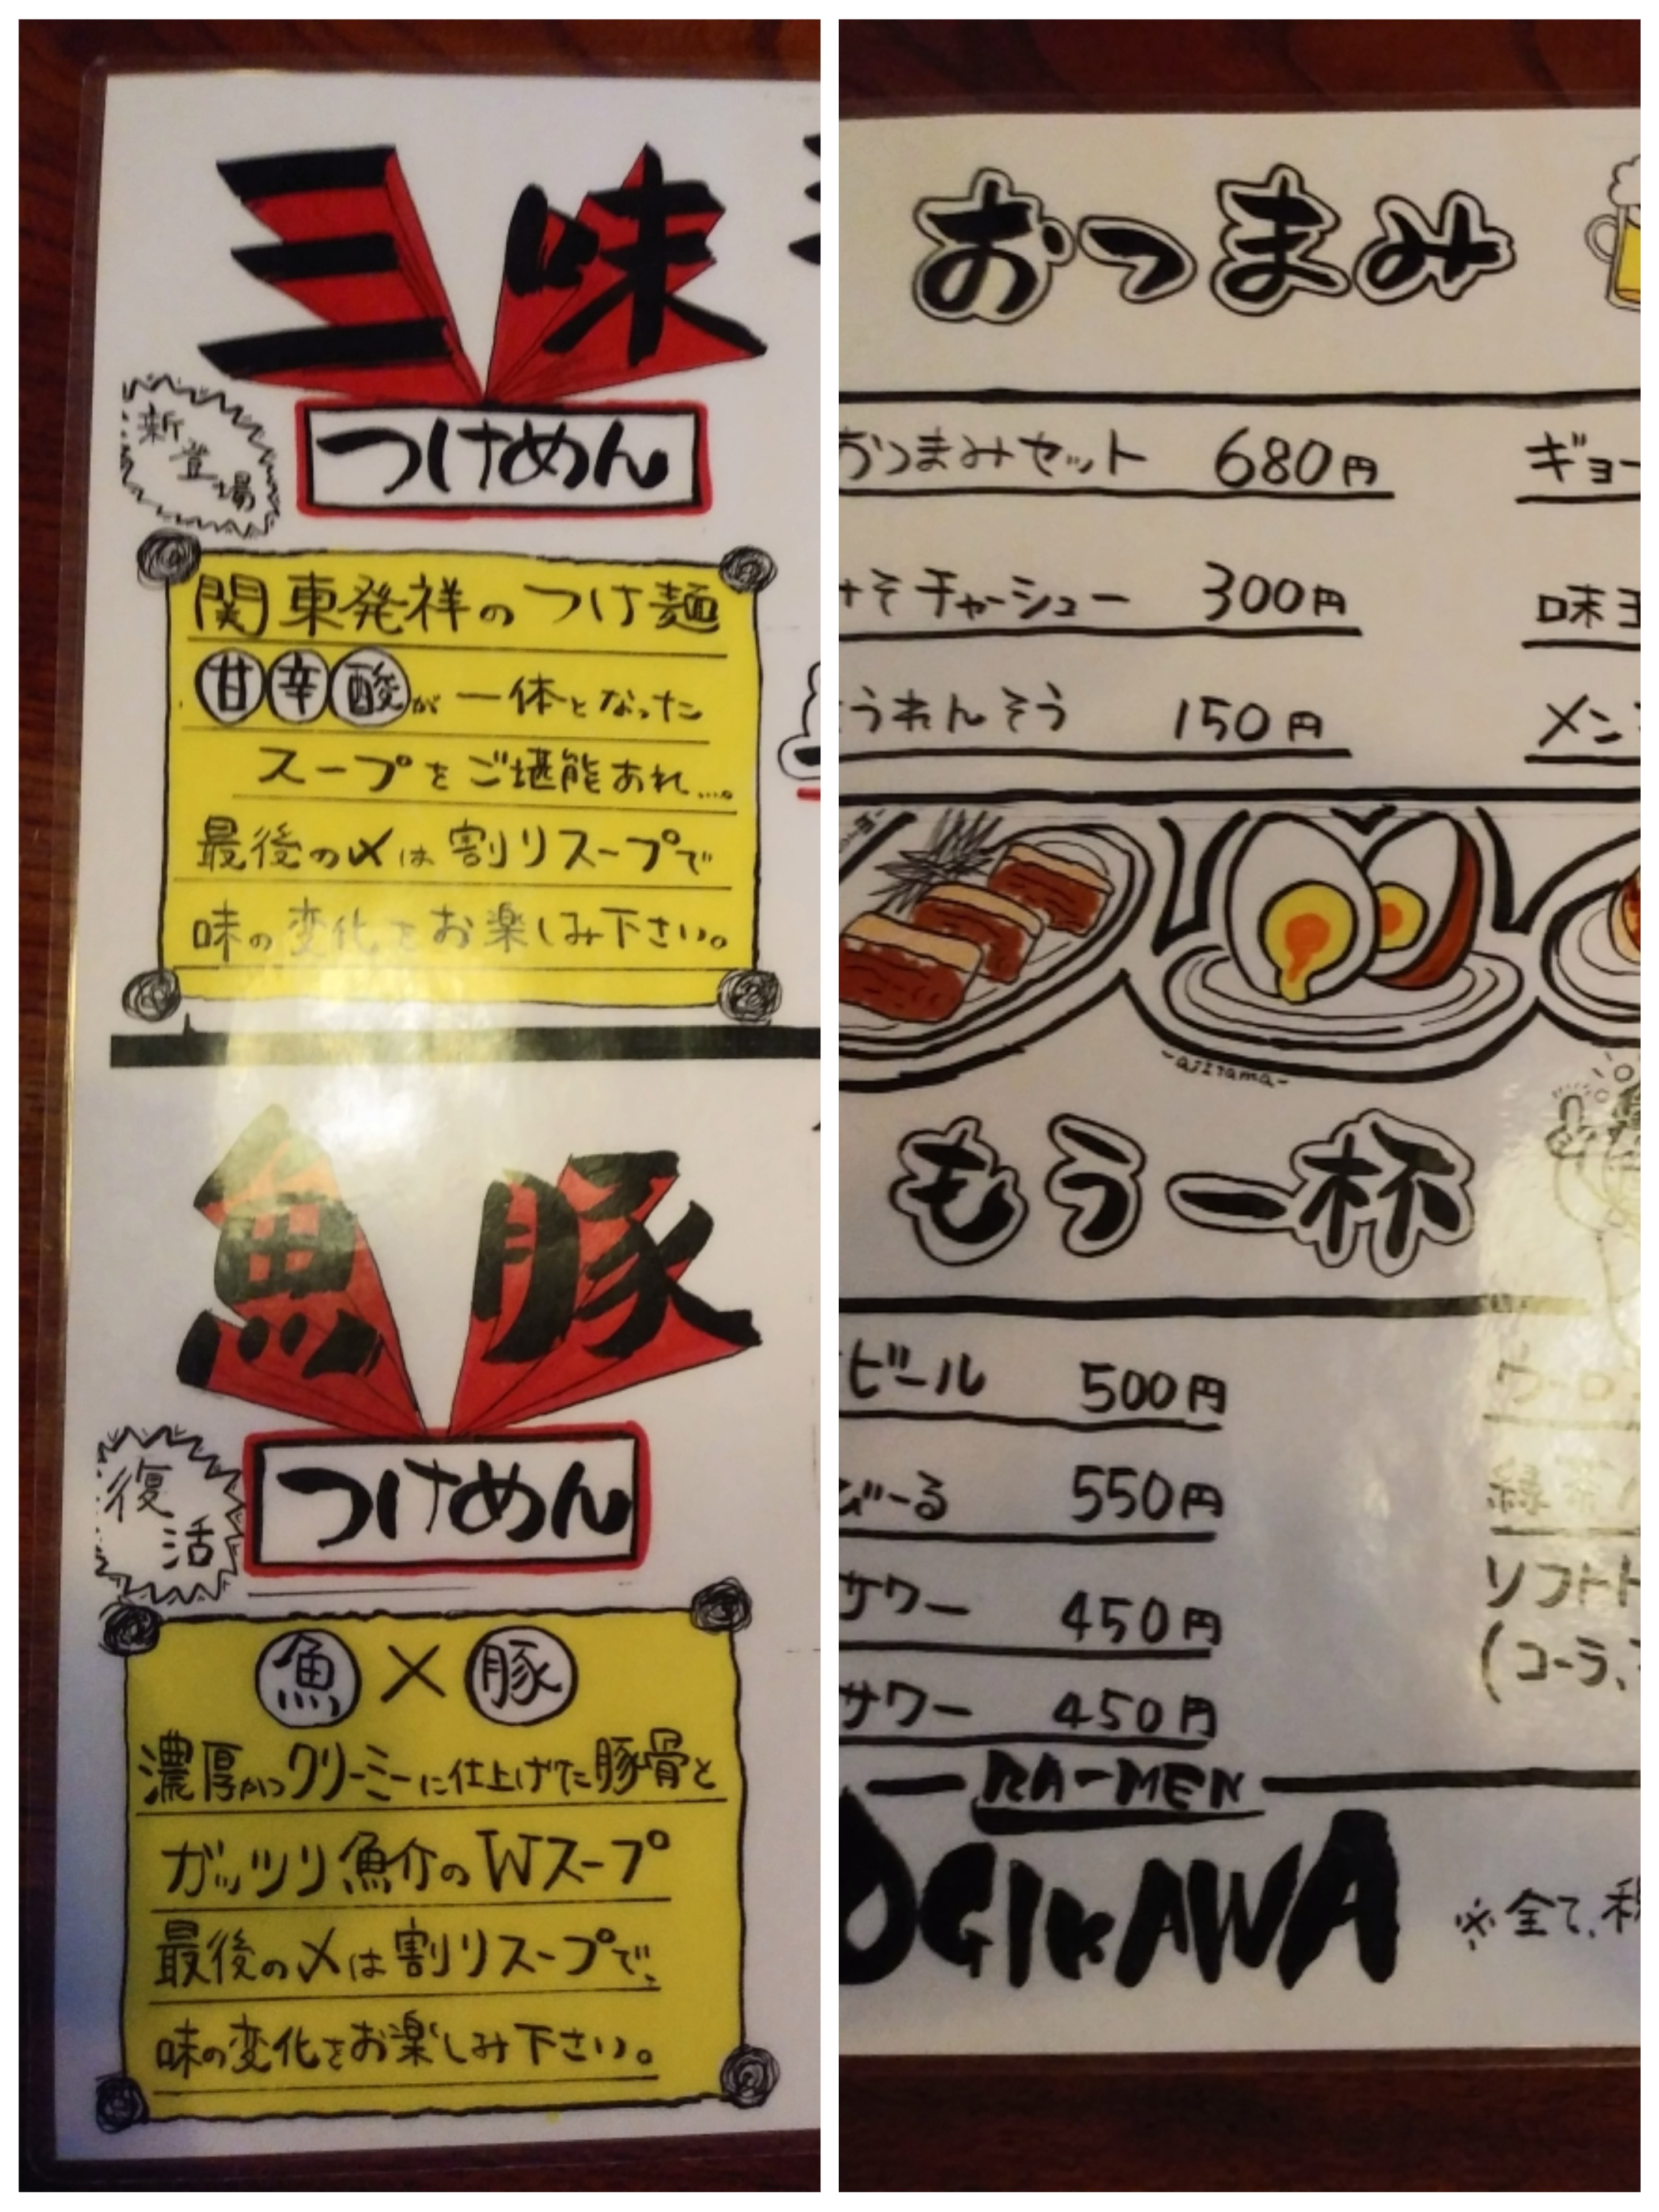 三味
つけめん
新登場
関東発祥のつけ麺
甘辛酸が一体となった
スープをご堪能あれ…。
最後の〆は割りスープで
味の変化をお楽しみ下さい。
魚豚
つけめん
復活
魚×豚
濃厚かつクリーミーに仕上げた豚骨と
ガッツリ魚介のWスープ
最後の〆は割りスープで、
味の変化をお楽しみ下さい。
おつまみ
おつまみセット 680円 ギョー
そチャーシュー 300円 味玉
うれんそう 150円 メン
-ajitama-
もう一杯
ビール 500円 ウーロ
びーる 550円 緑茶
サワー 450円 ソフト
サワー 450円 (コーラ、
RA-MEN
OGIKAWA ※全て、税